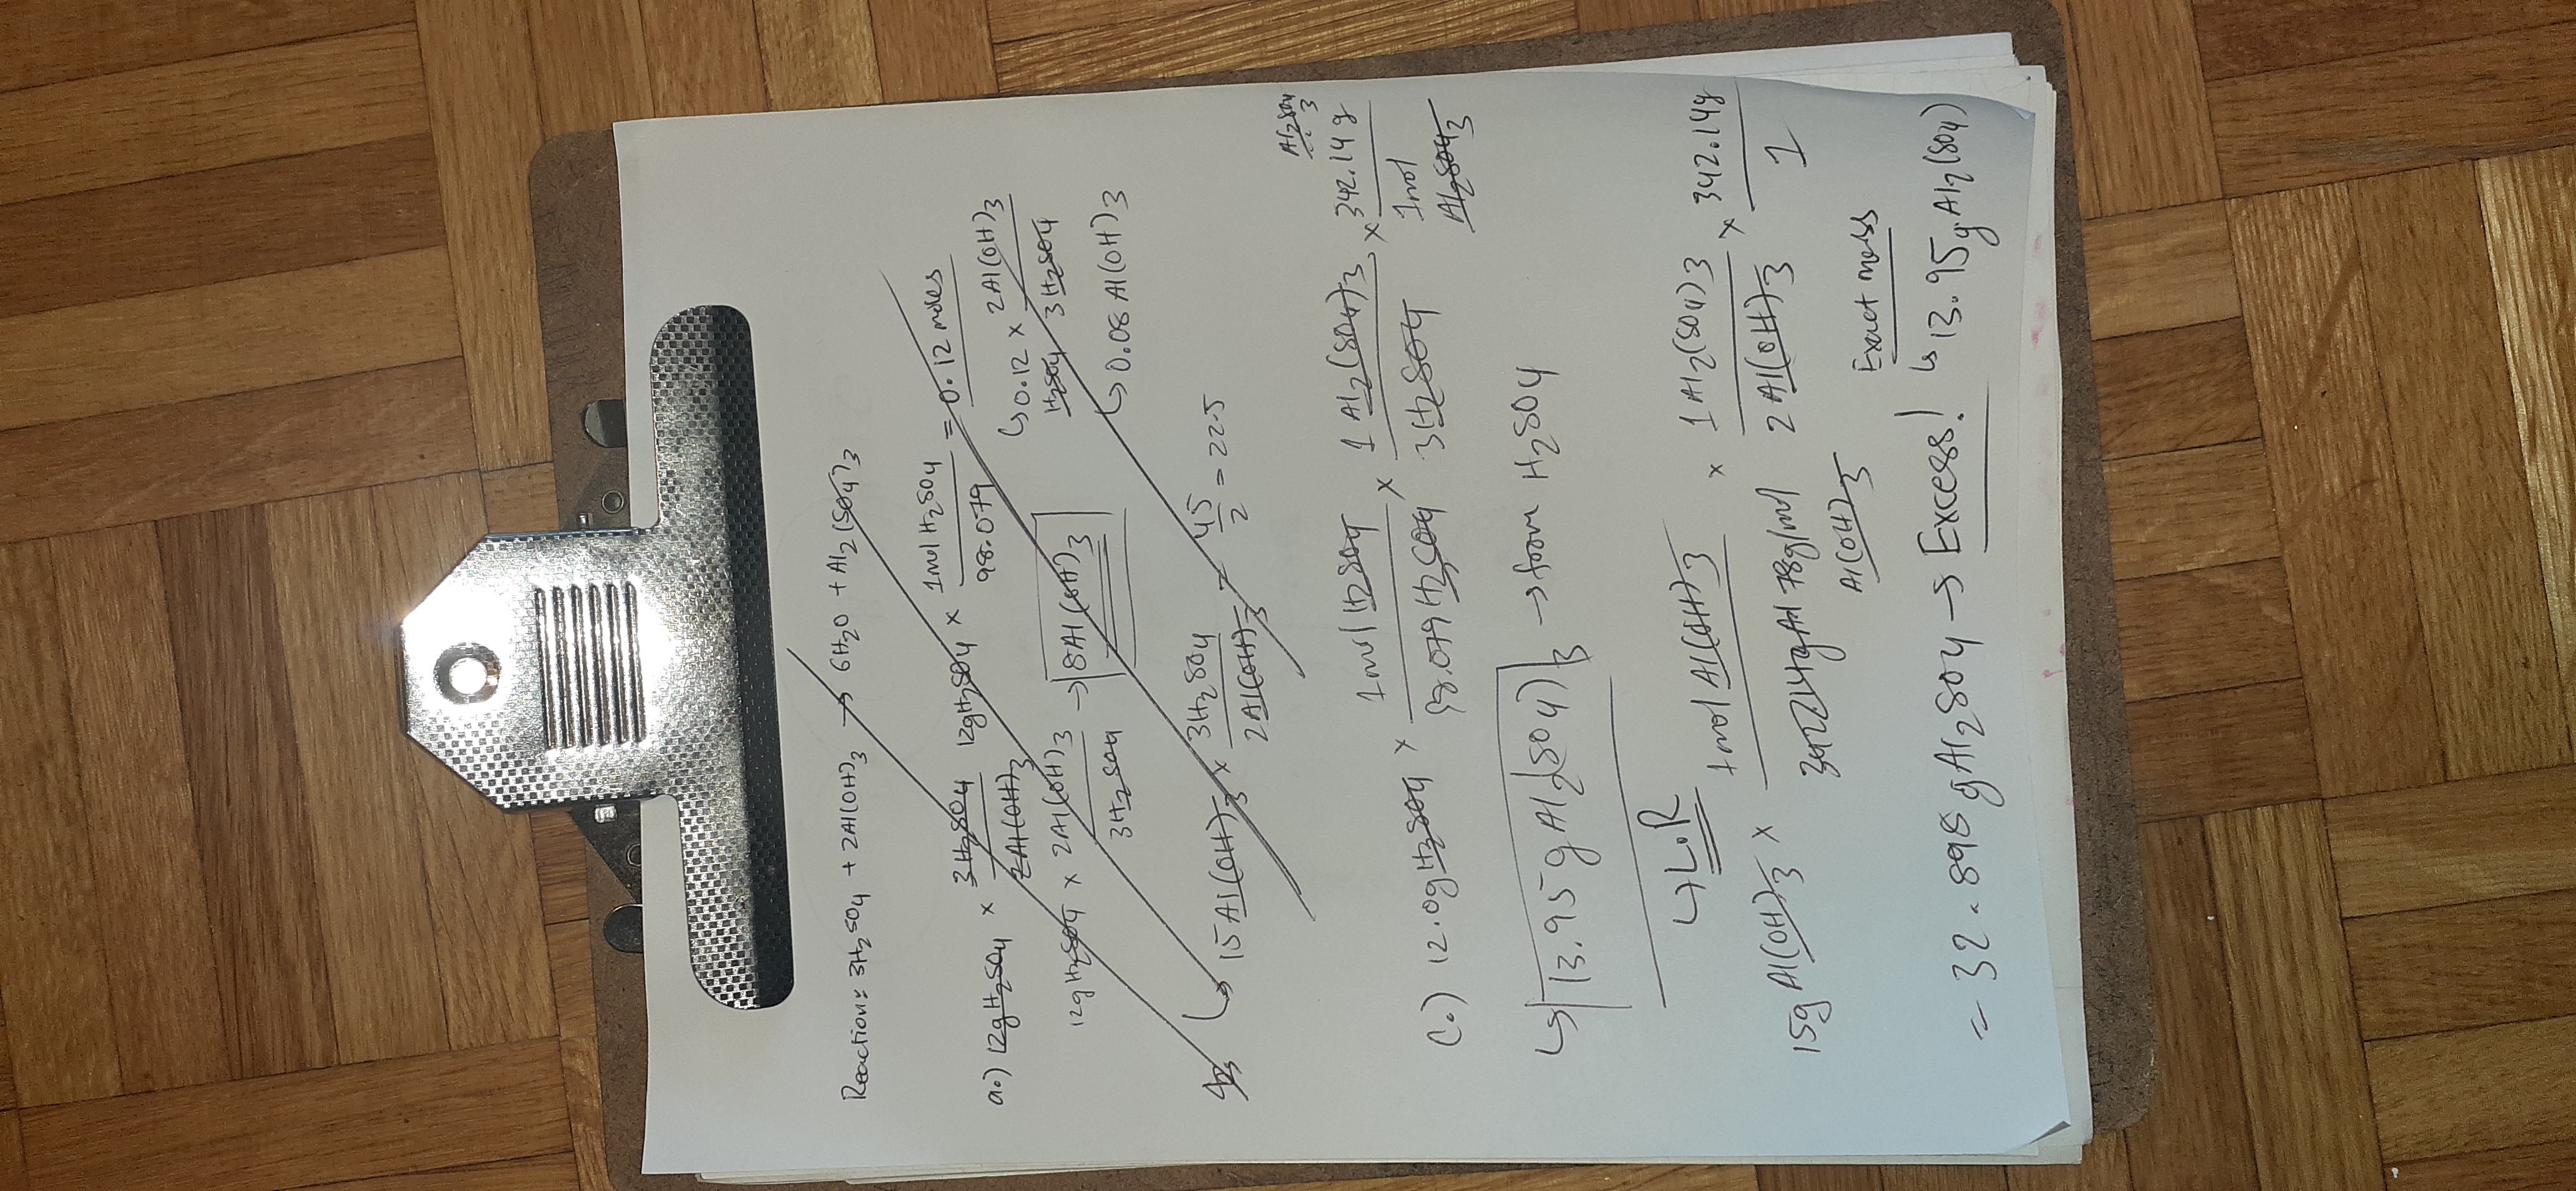 Reaction: 3H2SO4 + 2Al(OH)3 → 6H2O + Al2(SO4)3
a.) 12gH2SO4 × 3H2SO4 / 2Al(OH)3 12gH2SO4 × 1mol H2SO4 / 98.079 = 0.12 moles
↳ 0.12 H2SO4 × 2Al(OH)3 / 3H2SO4
12gH2SO4 × 2Al(OH)3 / 3H2SO4 → 8Al(OH)3
↳ 0.08 Al(OH)3
↳ 15Al(OH)3 × 3H2SO4 / 2Al(OH)3 = 45/2 = 22.5
C.) 12.0gH2SO4 × 1mol H2SO4 / 98.079 H2SO4 × 1 Al2(SO4)3 / 3H2SO4 × 342.14g Al2SO4 3 / 1mol Al2SO4 3
↳ 13.95gAl2(SO4)3 → from H2SO4
↳ L.R
15g Al(OH)3 × 1mol Al(OH)3 / 342.214g Al 78g/mol Al(OH)3 × 1Al2(SO4)3 / 2Al(OH)3 × 342.14g / 1
= 32.898gAl2SO4 → Excess!
Exact mass
↳ 13.95g Al2(SO4)